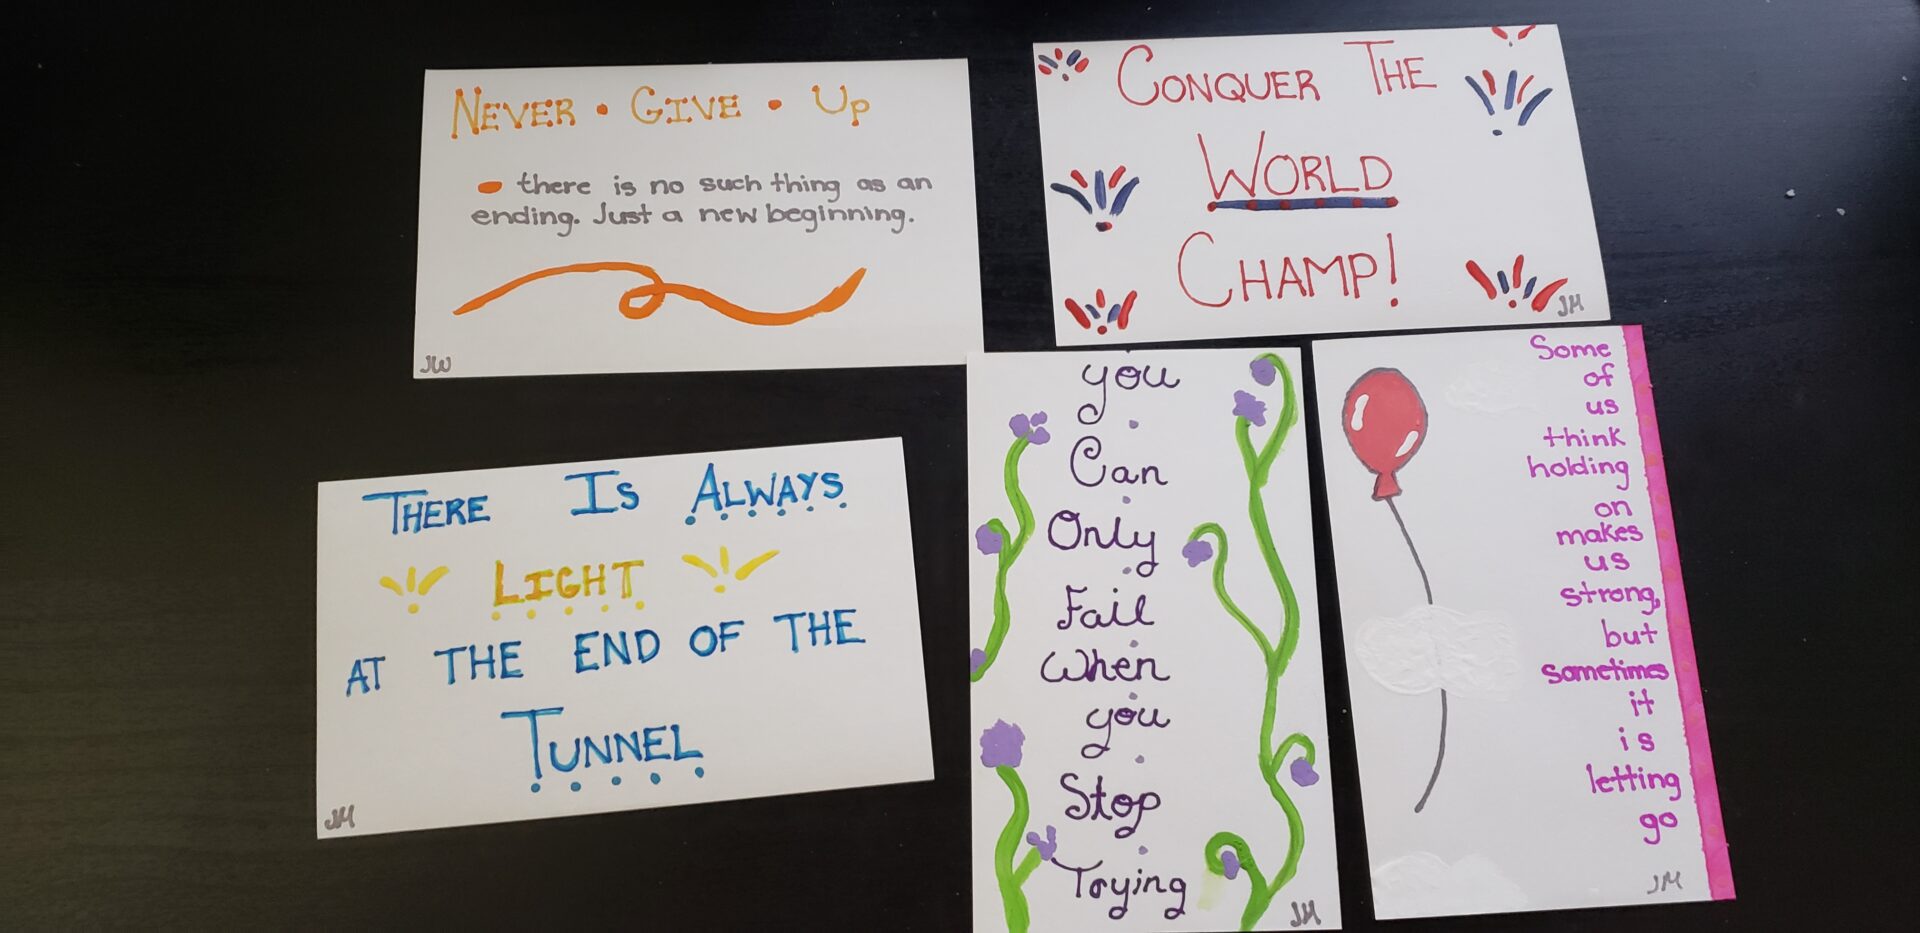 NEVER • GIVE • Up
• there is no such thing as an
ending. Just a new beginning.
JW
CONQUER THE
WORLD
CHAMP!
JM
THERE IS ALWAYS
LIGHT
AT THE END OF THE
TUNNEL
JM
you
Can
Only
Fail
When
you
Stop
Trying
JM
Some
of
us
think
holding
on
makes
us
strong,
but
sometimes
it
is
letting
go
JM